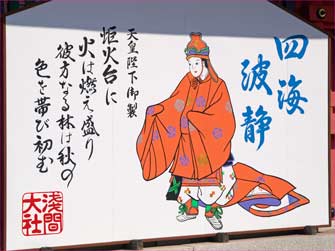 四海
波静
天皇陛下御製
炬火台に
火は燃え盛り
彼方なる林は秋の
色を帯び初む
浅間
大社